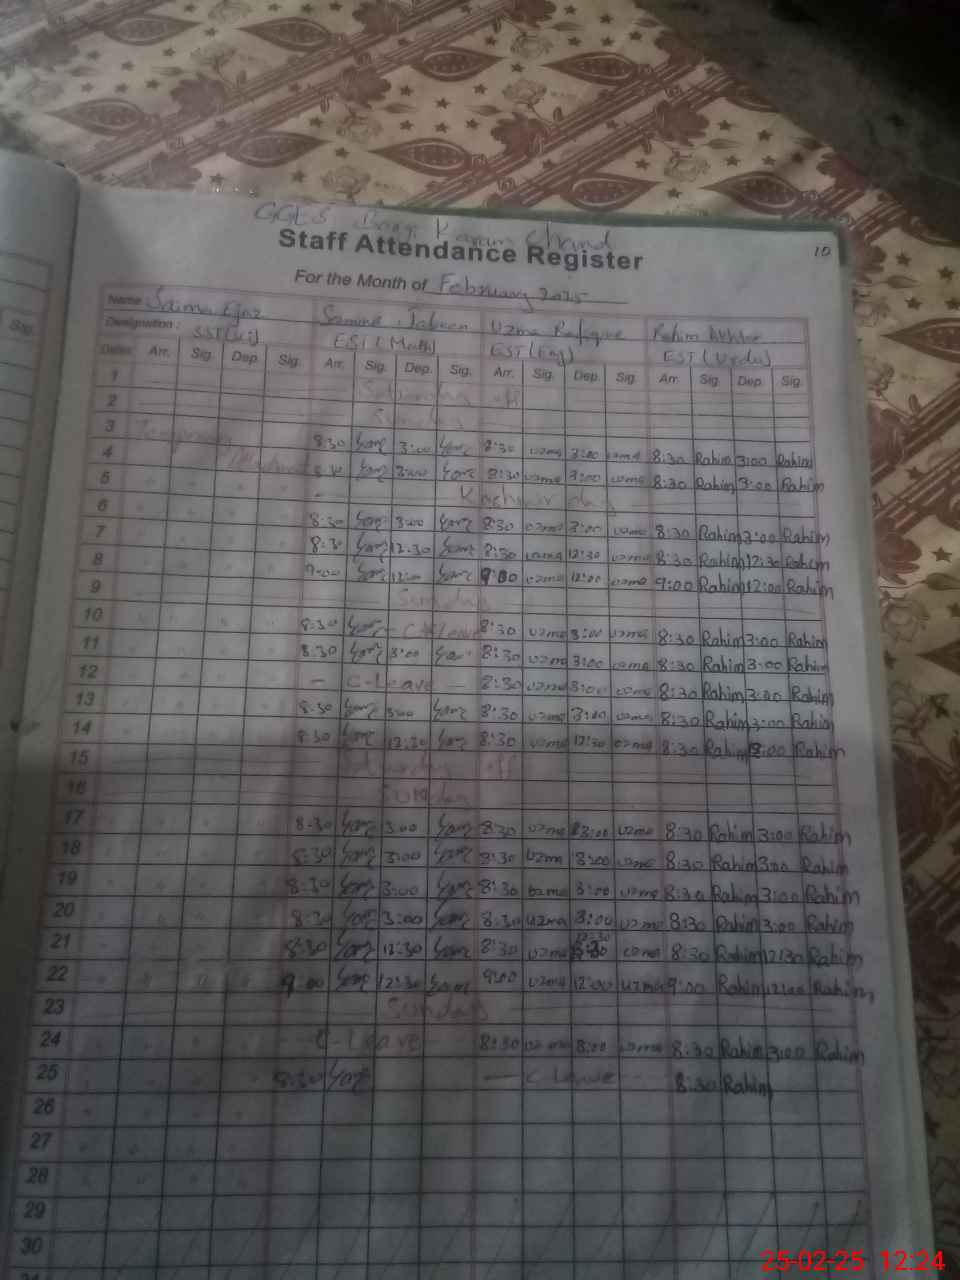 GGES Bagi Karam Chand
10
Staff Attendance Register
For the Month of February 2025
Name: Saima Ejaz Samina Jabeen Uzma Rafique Rahim Akhtar
Designation: SST(Sci) EST(Math) EST(Eng) EST(Urdu)
Dates Arr. Sig. Dep. Sig. Arr. Sig. Dep. Sig. Arr. Sig. Dep. Sig. Arr. Sig. Dep. Sig.
1 Saturday off
2 Sunday
3 Temporary 8:30 3:00 8:30 uzma 3:00 uzma 8:30 Rahim 3:00 Rahim
4 8:30 3:00 8:30 uzma 3:00 uzma 8:30 Rahim 3:00 Rahim
5 Kashmir day
6 8:30 3:00 8:30 uzma 3:00 uzma 8:30 Rahim 3:00 Rahim
7 8:30 12:30 8:30 uzma 12:30 uzma 8:30 Rahim 12:30 Rahim
8 9:00 12:00 9:00 uzma 12:00 uzma 9:00 Rahim 12:00 Rahim
9 Sunday
10 8:30 8:30 uzma 3:00 uzma 8:30 Rahim 3:00 Rahim
11 8:30 3:00 8:30 uzma 3:00 uzma 8:30 Rahim 3:00 Rahim
12 - C-Leave - 8:30 uzma 3:00 uzma 8:30 Rahim 3:00 Rahim
13 8:30 3:00 8:30 uzma 3:00 uzma 8:30 Rahim 3:00 Rahim
14 8:30 12:30 8:30 uzma 12:30 uzma 8:30 Rahim 3:00 Rahim
15 Saturday off
16 Sunday
17 8:30 3:00 8:30 uzma 3:00 uzma 8:30 Rahim 3:00 Rahim
18 8:30 3:00 8:30 uzma 3:00 uzma 8:30 Rahim 3:00 Rahim
19 8:30 3:00 8:30 uzma 3:00 uzma 8:30 Rahim 3:00 Rahim
20 8:30 3:00 8:30 uzma 3:00 uzma 8:30 Rahim 3:00 Rahim
21 8:30 12:30 8:30 uzma 12:30 uzma 8:30 Rahim 12:30 Rahim
22 9:00 12:30 9:00 uzma 12:00 uzma 9:00 Rahim 12:00 Rahim
23 Sunday
24 C-Leave 8:30 uzma 3:00 uzma 8:30 Rahim 3:00 Rahim
25 8:30 - C Leave 8:30 Rahim
26
27
28
29
30
25-02-25 12:24